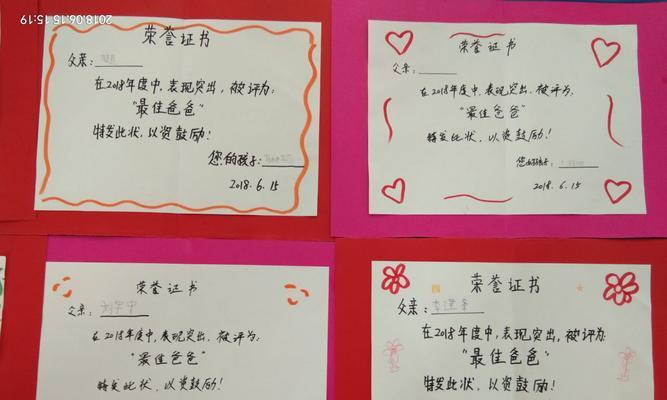 2018.06.15 15:19
荣誉证书
父亲:
在2018年度中,表现突出,被评为:
“最佳爸爸”
特发此状,以资鼓励!
您的孩子:
2018.6.15
荣誉证书
父亲:
在2018年度中,表现突出,被评为:
“最佳爸爸”
特发此状,以资鼓励!
您的孩子:
2018.6.15
荣誉证书
父亲:
在2018年度中,表现突出,被评为:
“最佳爸爸”
特发此状,以资鼓励!
荣誉证书
父亲:
在2018年度中,表现突出,被评为:
“最佳爸爸”
特发此状,以资鼓励!